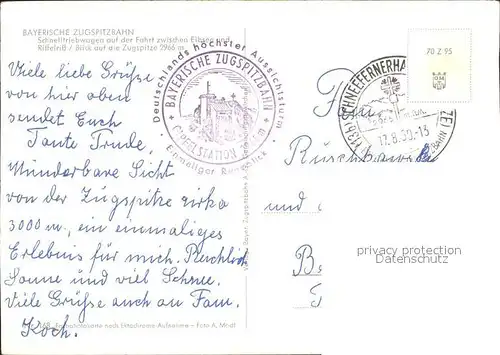 BAYERISCHE ZUGSPITZBAHN
Schnelltriebwagen auf der Fahrt zwischen Eibsee und
Riffelriß / Blick auf die Zugspitze 2966 m
Viele liebe Grüße
von hier oben
sendet Euch
Tante Trude,
Wunderbare Sicht
von der Zugspitze zirka
3000 m, ein einmaliges
Erlebnis für mich. Reichlich
Sonne und viel Schnee.
Viele Grüße auch an Fam.
Koch.
Deutschlands höchster Aussichtsturm
BAYERISCHE ZUGSPITZBAHN
GIPFELSTATION
Einmaliger Rundblick
SCHNEEFERNERHA
17.8.80.-15
70 Z 95
Fam.
und
privacy protection
Datenschutz
nach Ektachrome-Aufnahme - Foto A.